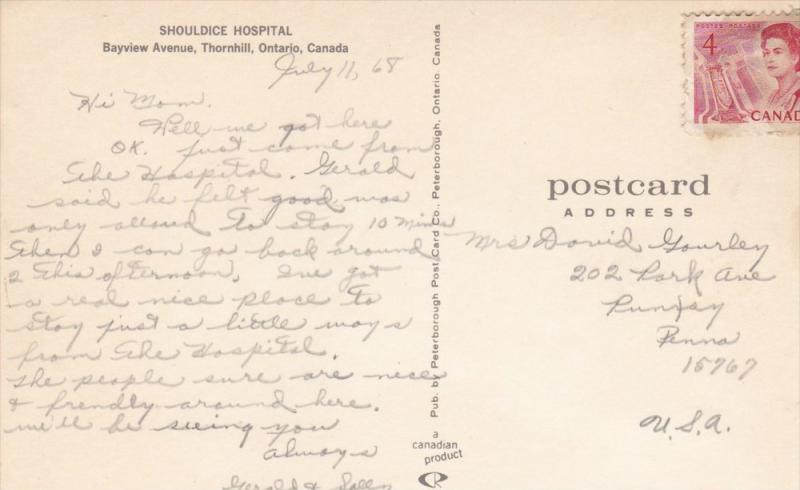 SHOULDICE HOSPITAL
Bayview Avenue, Thornhill, Ontario, Canada
July 11, 68
Hi Mom.
Well we got here
OK. just came from
the Hospital. Gerald
said he felt good was
only alloud to stay 10 mins
then I can go back around
2 this afternoon, Ive got
a real nice place to
stay just a little ways
from the Hospital.
The people sure are nice
& frendly around here.
we'll be seeing you
always
Gerald &
Pub. by Peterborough Post Card Co., Peterborough, Ontario, Canada
a
canadian
product
POSTES POSTAGE
4
CANAD
postcard
ADDRESS
Mrs David Gourley
202 Park Ave
Punxsy
Penna
15767
U.S.A.